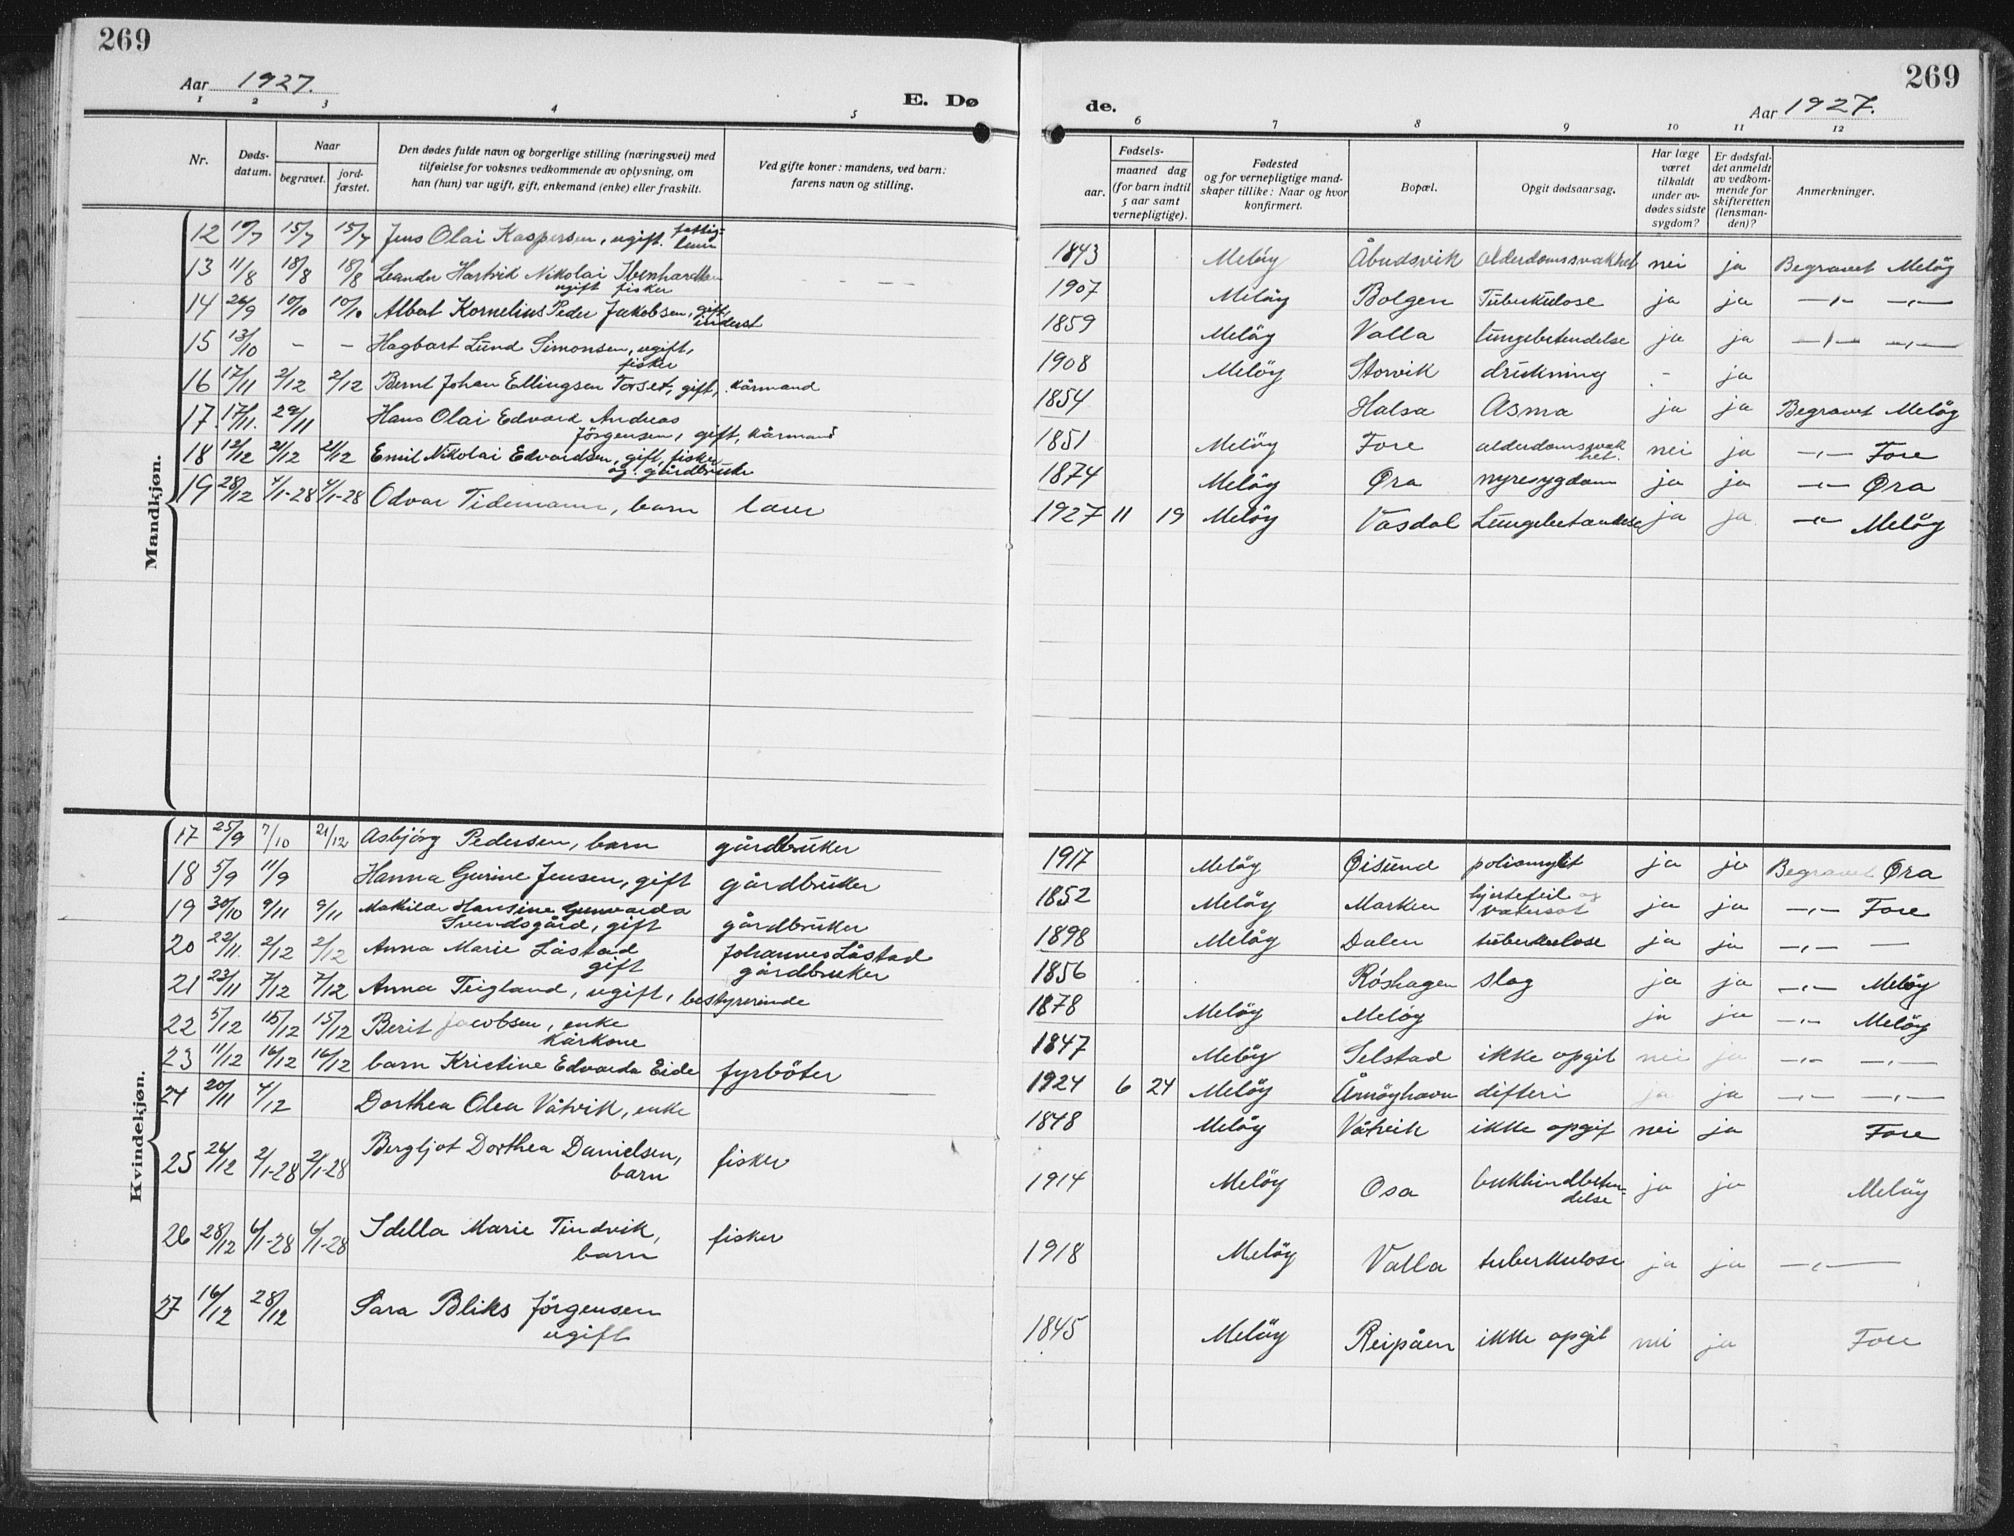 269
Aar 1927.
E. Dø
1 2 3 4 5
Nr.
Døds-
datum.
Naar
begravet.
jord-
fæstet.
Den dødes fulde navn og borgerlige stilling (næringsvei) med
tilføielse for voksnes vedkommende av oplysning, om
han (hun) var ugift, gift, enkemand (enke) eller fraskilt.
Ved gifte koner: mandens, ved barn:
farens navn og stilling.
Mandkjøn.
12 19/7 15/7 15/7 Jens Olai Kaspersen, ugift.
13 11/8 18/8 18/8 Leander Hartvik Nikolai
ugift fisker
14 26/9 10/10 10/10 Albert Kornelius Peder Jakobsen, gift,
inderst
15 13/10 – – Hagbart Lund Simonsen, ugift,
fisker
16 17/11 2/12 2/12 Bernt Johan Ellingsen Torset, gift, kårmand
17 17/11. 29/11 Hans Olai Edvard Andreas
Jörgensen, gift, kårmand
18 12/12 21/12 21/12 Emil Nikolai Edvardsen, gift, fisker
og gårdbruker
19 28/12 4/1-28 4/1-28 Odvar Tidemann, barn lærer
Kvindekjøn.
17 25/9 7/10 21/12 Asbjörg Pedersen, barn gårdbruker
18 5/9 11/9 Hanna Gurine Jensen, gift gårdbruker
19 30/10 9/11 9/11 Mathilde Hansine
Svendsgård, gift gårdbruker
20 22/11. 2/12 2/12 Anna Marie Låstad Johannes Låstad
gift gårdbruker
21 23/11 7/12 7/12 Anna Teigland, ugift, bestyrerinde
22 5/12 15/12 15/12 Berit Jacobsen, enke
kårkone
23 11/12 16/12 16/12 barn Kristine Edvarda Eide fyrböter
24 20/11 4/12 Dorthea Olea Våtvik, enke
25 26/12 2/1-28 2/1-28 Bergljot Dorthea Danielsen, fisker
barn
26 28/12 6/1-28 6/1-28 Idella Marie Tindvik, fisker
barn
27 16/12 28/12 Sara Bliks Jörgensen
ugift
269
de.
Aar 1927.
6 7 8 9 10 11 12
Fødsels-
aar.
maaned dag
(for barn indtil
5 aar samt
vernepligtige).
Fødested
og for vernepligtige mand-
skaper tillike: Naar og hvor
konfirmert.
Bopæl.
Opgit dødsaarsag.
Har læge
været
tilkaldt
under av-
dødes sidste
sygdom?
Er dødsfal-
det anmeldt
av vedkom-
mende for
skifteretten
(lensman-
den)?
Anmerkninger.
1843 Melöy Åbudsvik alderdomssvakhet nei ja Begravet Melöy
1907 Melöy Bolgen Tuberkulose ja ja –„– –„–
1859 Melöy Valla lungebetendelse ja ja –„– –„–
1908 Melöy Storvik drukning – ja
1854 Halsa Asma ja ja Begravet Melöy
1851 Melöy Fore alderdomssvak
het. nei ja –„– Fore
1874 Melöy Øra nyresygdom ja ja –„– Øra
1927 11 19 Melöy Vasdal Lungebetændelse ja ja –„– Melöy
1917 Melöy Øisund poliomyelit ja ja Begravet Øra
1852 Melöy Marken hjertefeil og
vatersot ja ja –„– Fore
1898 Melöy Dalen tuberkulose ja ja –„– –
1856 Röshagen slag ja ja –„– Melöy
1878 Melöy Melöy ja ja –„– Melöy
1847 Melöy Selstad ikke opgit nei ja –„– –„–
1924 6 24 Melöy Åmöyhavn difteri ja ja –„– –„–
1848 Melöy Våtvik ikke opgit nei ja Fore
1914 Melöy Osa bukhindbeten-
delse ja ja Melöy
1918 Melöy Valla tuberkulose ja ja –„–
1845 Melöy Reipåen ikke opgit nei ja Fore